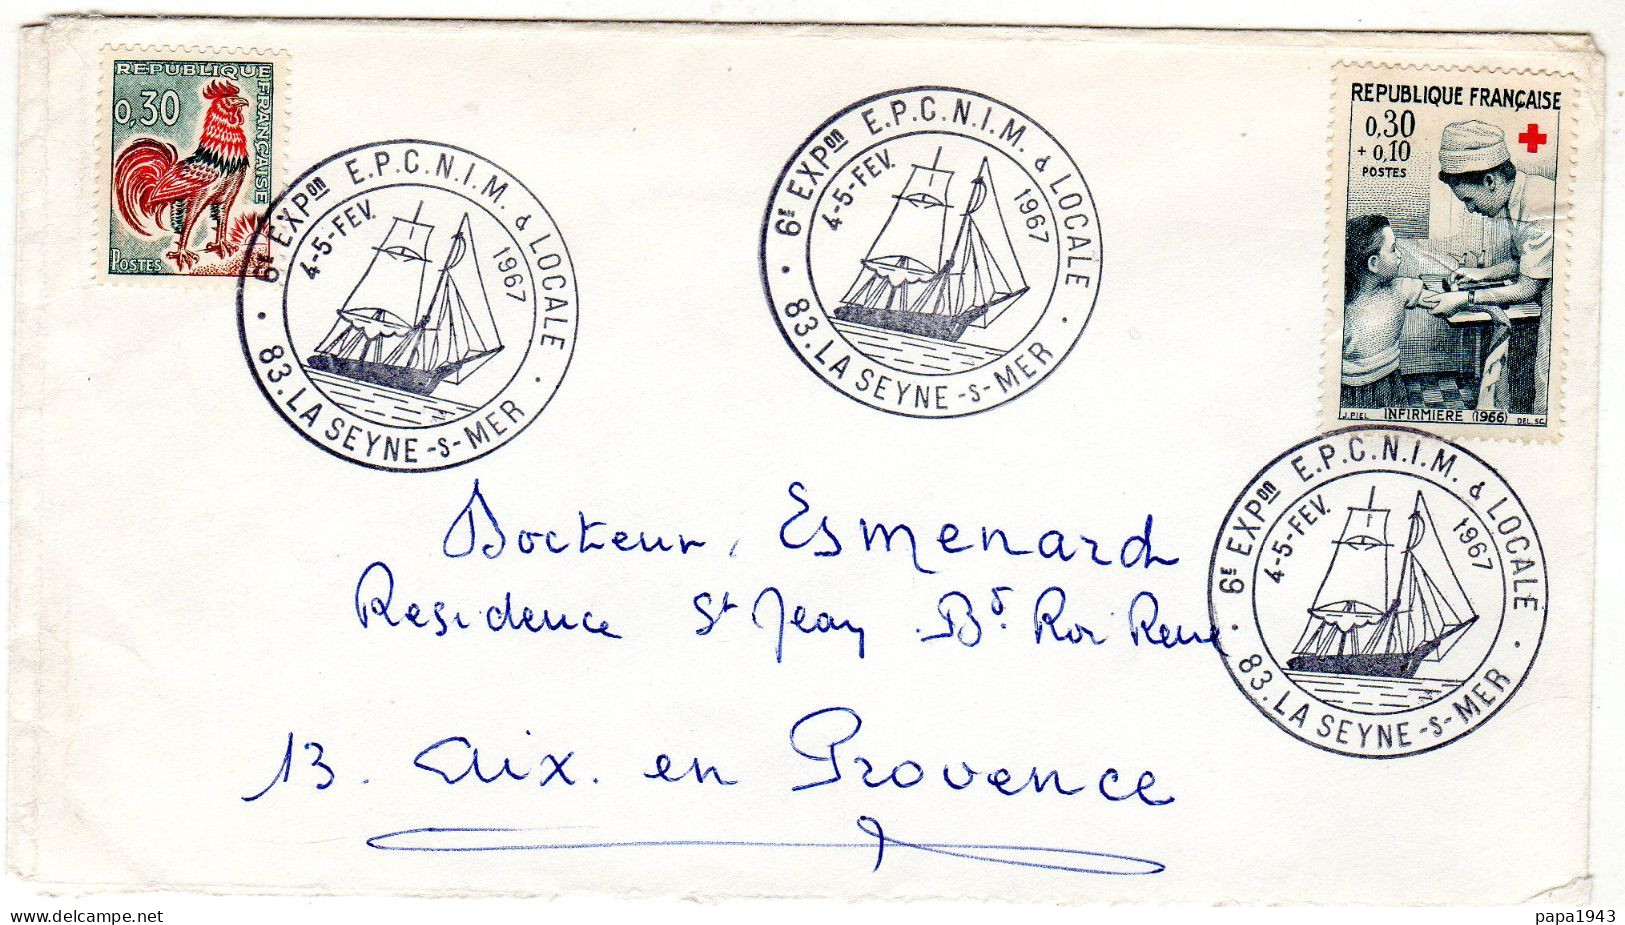 REPUBLIQUE FRANÇAISE
0,30
POSTES
6E EXPon E.P.C.N.I.M. & LOCALE
4-5-FEV. 1967
83. LA SEYNE-S-MER
6E EXPon E.P.C.N.I.M. & LOCALE
4-5-FEV. 1967
83. LA SEYNE-S-MER
REPUBLIQUE FRANÇAISE
0,30
+ 0,10
POSTES
J. PIEL INFIRMIERE (1966) DEL. SC.
6E EXPon E.P.C.N.I.M. & LOCALE
4-5-FEV. 1967
83. LA SEYNE-S-MER
Docteur, Esmenard
Residence St Jean Bd. Roi René
13. Aix. en Provence
www.delcampe.net
papa1943